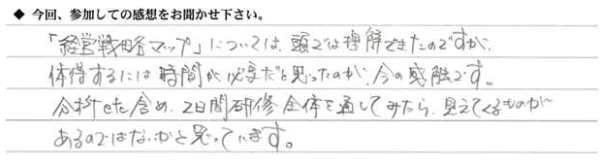 ◆ 今回、参加しての感想をお聞かせ下さい。
「経営戦略マップ」については、頭では理解できたのですが、
体得するには時間が必要だと思ったのが、今の感触です。
分析も含め、2日間研修全体を通してみたら、見えてくるものが
あるのではないかと思っています。